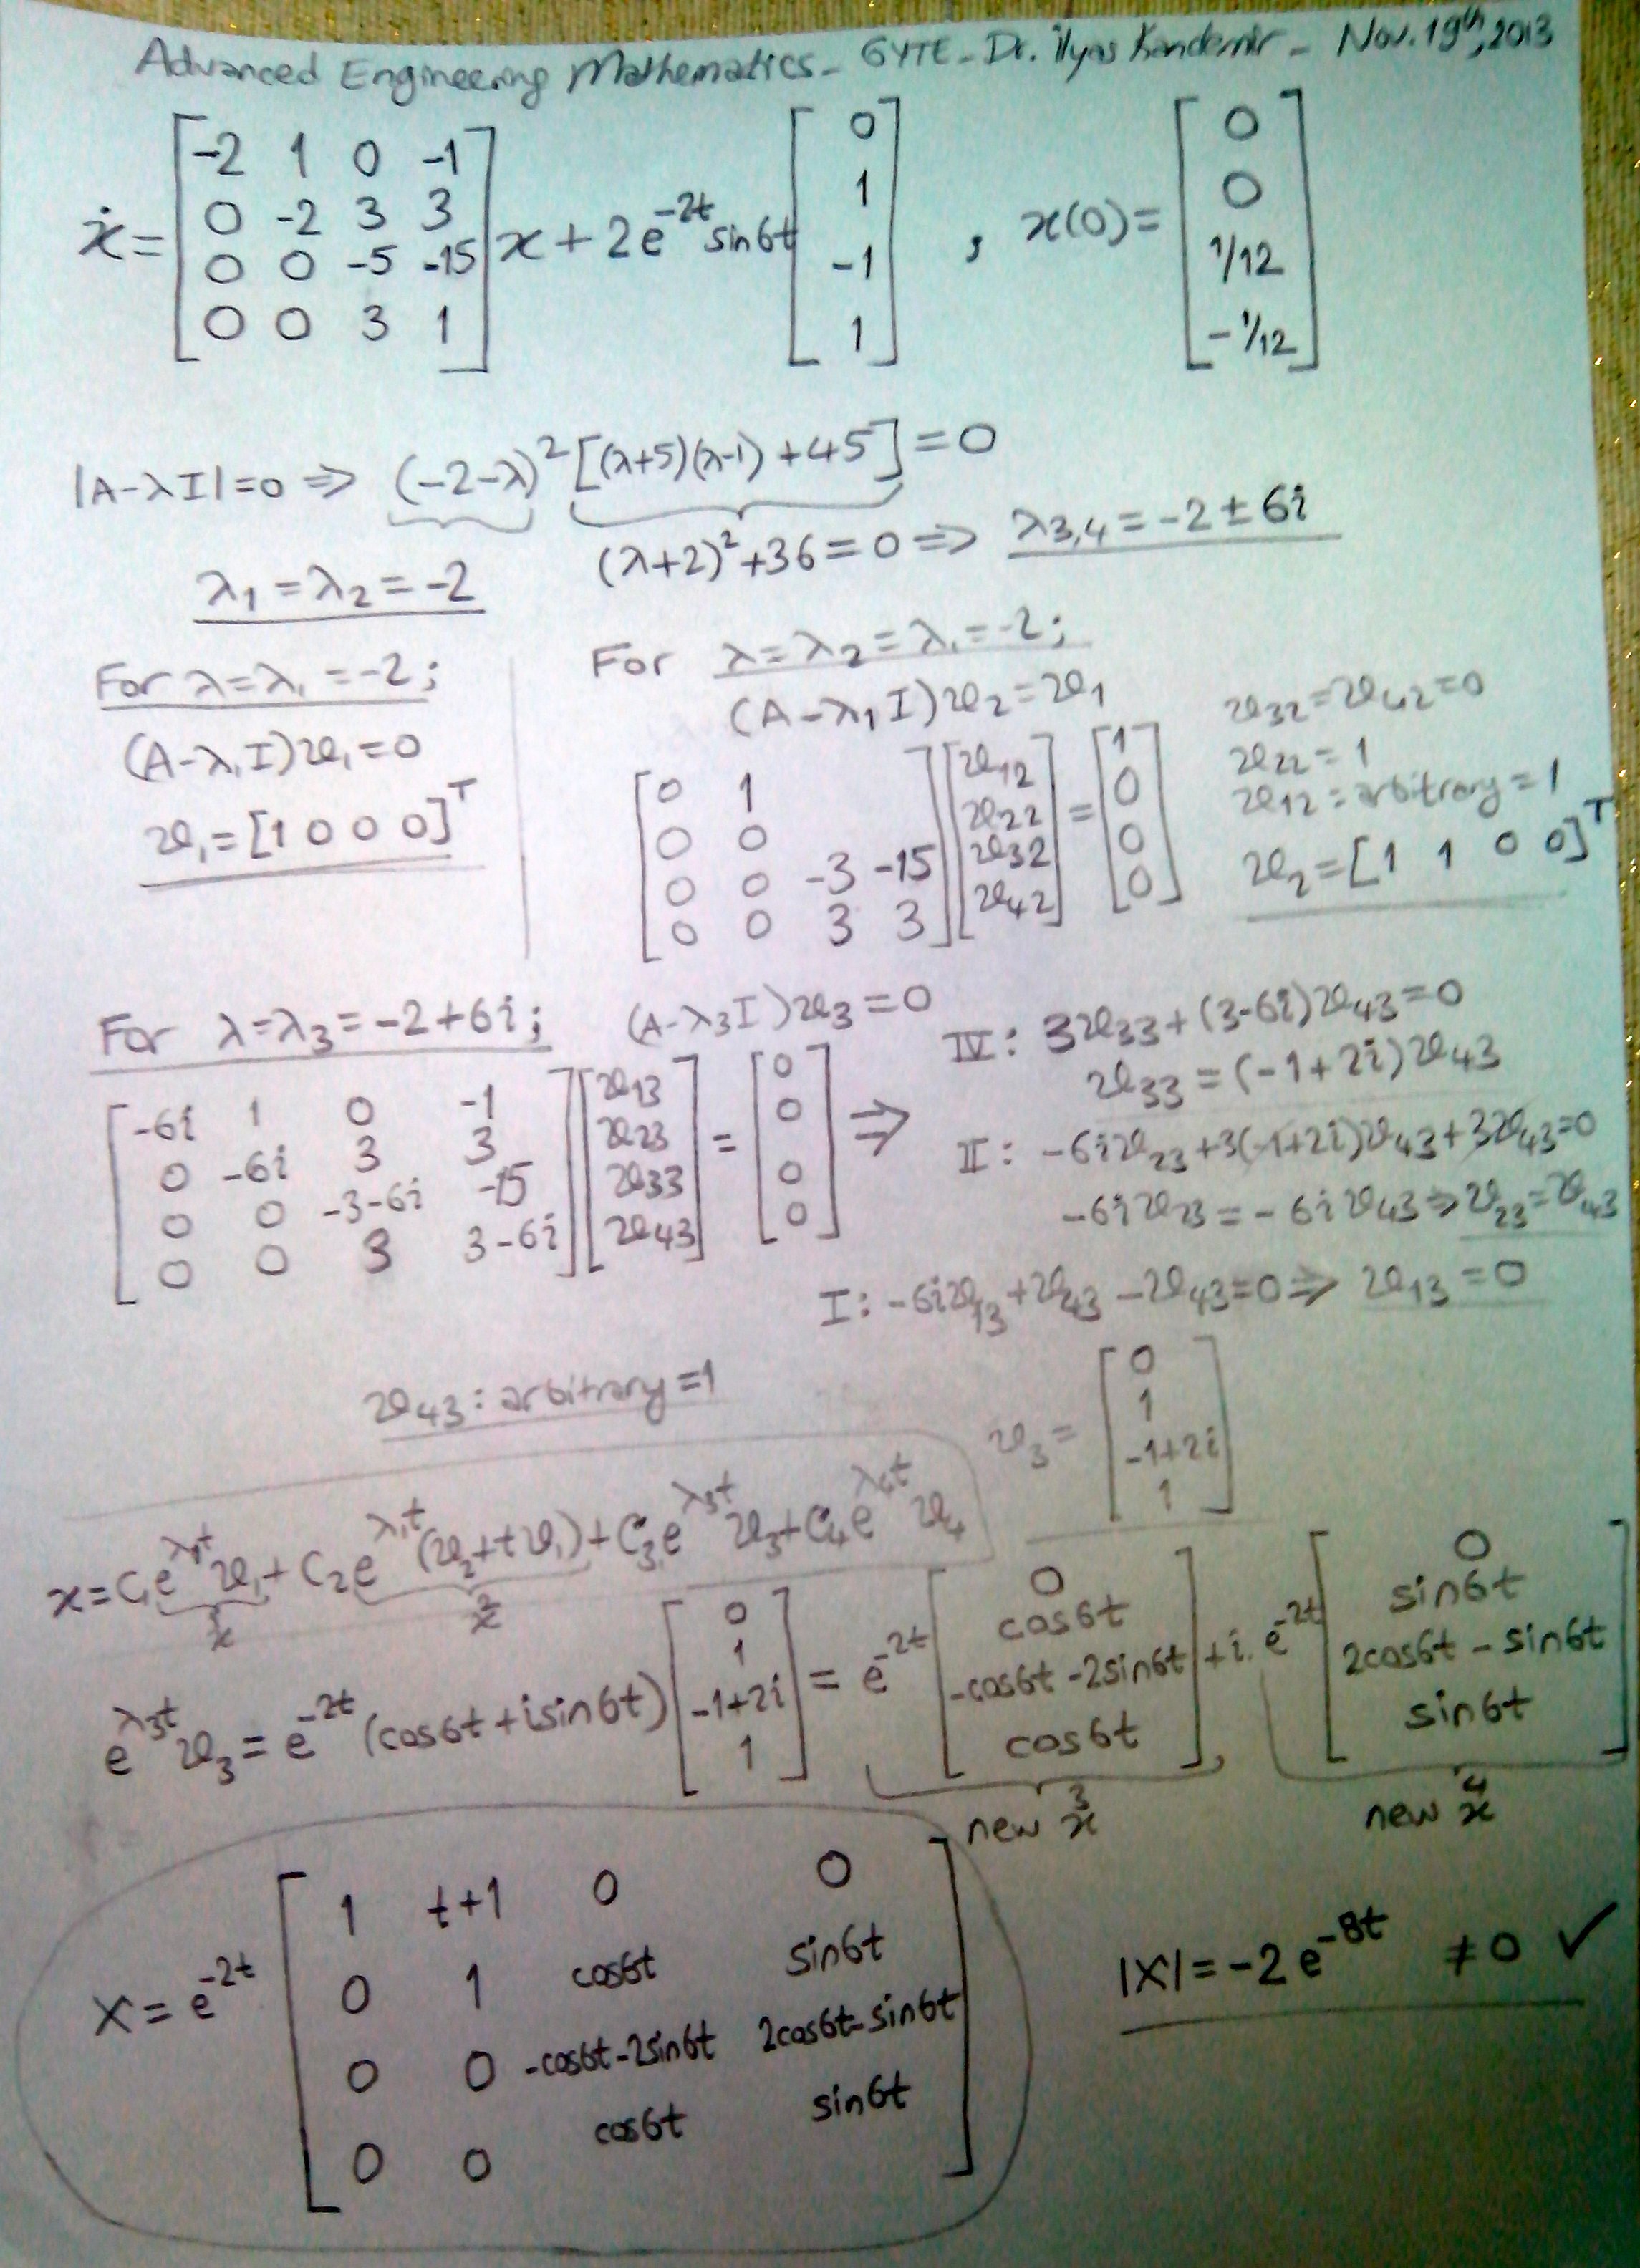 Advanced Engineering Mathematics - GYTE - Dr. ilyas Kandemir - Nov. 19th, 2013
ẋ = [-2 1 0 -1; 0 -2 3 3; 0 0 -5 -15; 0 0 3 1] x + 2e^-2t sin6t [0; 1; -1; 1] , x(0) = [0; 0; 1/12; -1/12]
|A-λI|=0 ⇒ (-2-λ)² [(λ+5)(λ-1)+45] = 0
λ1 = λ2 = -2
(λ+2)² + 36 = 0 ⇒ λ3,4 = -2 ± 6i
For λ=λ1 = -2;
(A-λ1I)v1 = 0
v1 = [1 0 0 0]^T
For λ=λ2=λ1=-2;
(A-λ1I)v2 = v1
[0 1; 0 0; 0 0 -3 -15; 0 0 3 3] [v12; v22; v32; v42] = [1; 0; 0; 0]
v32 = v42 = 0
v22 = 1
v12 = arbitrary = 1
v2 = [1 1 0 0]^T
For λ=λ3 = -2+6i; (A-λ3I)v3 = 0
[-6i 1 0 -1; 0 -6i 3 3; 0 0 -3-6i -15; 0 0 3 3-6i] [v13; v23; v33; v43] = [0; 0; 0; 0] ⇒
IV: 3v33 + (3-6i)v43 = 0
v33 = (-1+2i)v43
II: -6iv23 + 3(-1+2i)v43 + 3v43 = 0
-6iv23 = -6iv43 ⇒ v23 = v43
I: -6iv13 + v43 - v43 = 0 ⇒ v13 = 0
v43: arbitrary = 1
v3 = [0; 1; -1+2i; 1]
x = C1e^λ1t v1 + C2e^λ1t (v2+tv1) + C3e^λ3t v3 + C4e^λ4t v4
x^1 x^2
e^λ3t v3 = e^-2t (cos6t + isin6t) [0; 1; -1+2i; 1] = e^-2t [0; cos6t; -cos6t-2sin6t; cos6t] + i. e^-2t [0; sin6t; 2cos6t - sin6t; sin6t]
new x^3 new x^4
X = e^-2t [1 t+1 0 0; 0 1 cos6t sin6t; 0 0 -cos6t-2sin6t 2cos6t-sin6t; 0 0 cos6t sin6t]
|X| = -2e^-8t ≠ 0 ✓